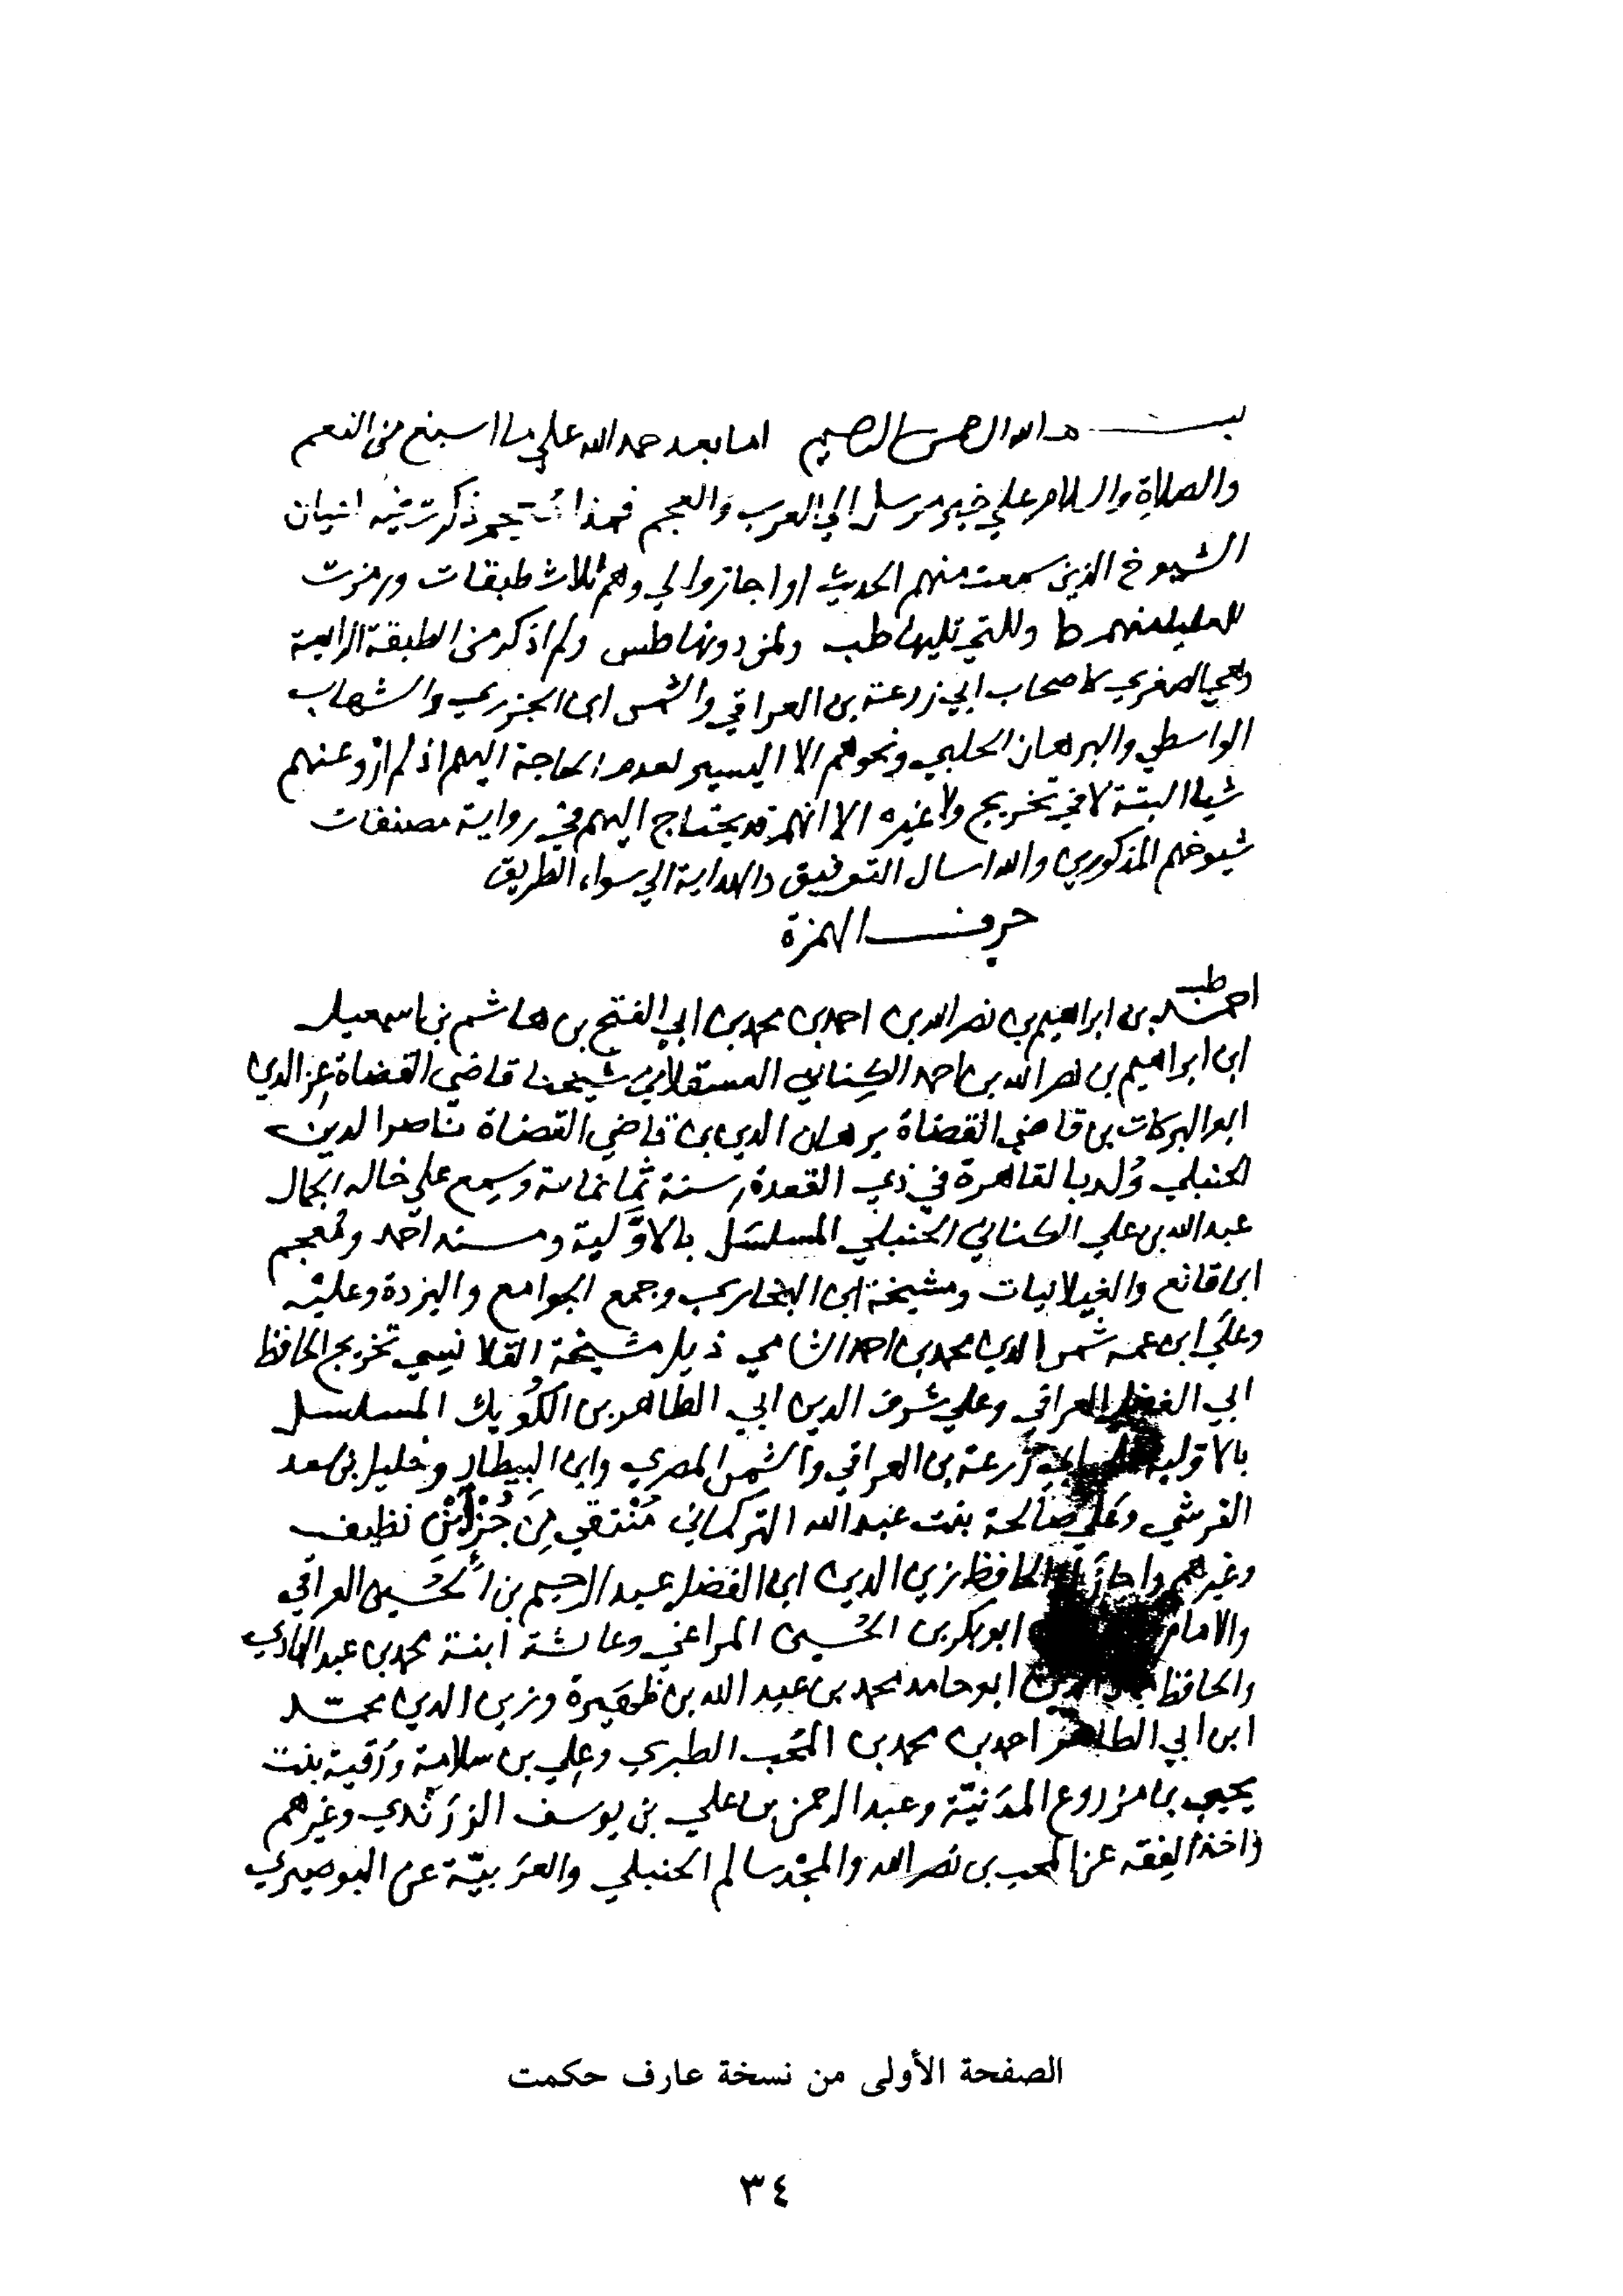 بسم الله الرحمن الرحيم اما بعد حمد الله علي ما اسبغ من النعم
والصلاة والسلام علي خير مرسل الي العرب والعجم فهذا معجم ذكرت فيه اعيان
الشيوخ الذين سمعت منهم الحديث او اجازوا لي وهم ثلاث طبقات ورمزت
للعليا منهم ط وللتي تليها طب ولمن دونها طس ولم اذكر من الطبقة الرابعة
وهي الصغري كاصحاب ابي زرعة بن العراقي والشمس ابن الجزري والشهاب
الواسطي والبرهان الحلبي ونحوهم الا اليسير لعدم الحاجة اليهم اذ لم ارو عنهم
شيا البتة لا في تخريج ولا غيره الا انهم قد يحتاج اليهم في رواية مصنفات
شيوخهم المذكورين والله اسال التوفيق والهداية الي سواء الطريق
حرف الهمزة
طب
احمد بن ابراهيم بن نصر الله بن احمد بن محمد بن ابي الفتح بن هاشم بن اسمعيل
ابن ابراهيم بن نصر الله بن احمد الكِناني العسقلاني شيخنا قاضي القضاة عز الدين
ابو البركات بن قاضي القضاة برهان الدين بن قاضي القضاة ناصر الدين
الحنبلي وُلد بالقاهرة في ذي القعدة سنة ثمانمائة وسمع علي خاله الجمال
عبد الله بن علي الكناني الحنبلي المسلسَل بالاوَّلية ومسند احمد ومُعجم
ابن قانع والغيلانيات ومشيخة ابن البخاري وجمع الجوامع والبردة وعليه
وعلَي ابن عمه شمس الدين محمد بن احمد الشامي ذيل مشيخة القلانسي تخريج الحافظ
ابي الفضل العراقي وعلي شرف الدين ابي الطاهر بن الكُويك المسلسل
بالاولية وعلي ابي زرعة بن العراقي والشمس المصري وابن البيطار وخليل بن سعد
القرشي وعَلي صالحة بنت عبد الله التركماني مُنْتقي مِن جُزْءِ ابْن نظيف
وغيرهم واجاز له الحافظ زين الدين ابو الفضل عبد الرحيم بن الحُسين العراقي
والامام ابو بكر بن الحُسين المراغي وعائشة ابنة محمد بن عبد الهادي
والحافظ جمال الدين ابو حامد محمد بن عبد الله بن ظهيرة وزين الدين محمد
ابن ابي الطاهر احمد بن محمد بن المُحب الطبري وعلي بن سلامة ورُقية بنت
يحيي بن مزروع المدَنيّة وعبد الرحمن بن علي بن يوسف الزرَنْدي وغيرهم
واخذ الفِقه عن المحب بن نصر الله والمجْد سالم الحنبلي والعرَبيّة عن البوصيري
الصفحة الأولى من نسخة عارف حكمت
٣٤